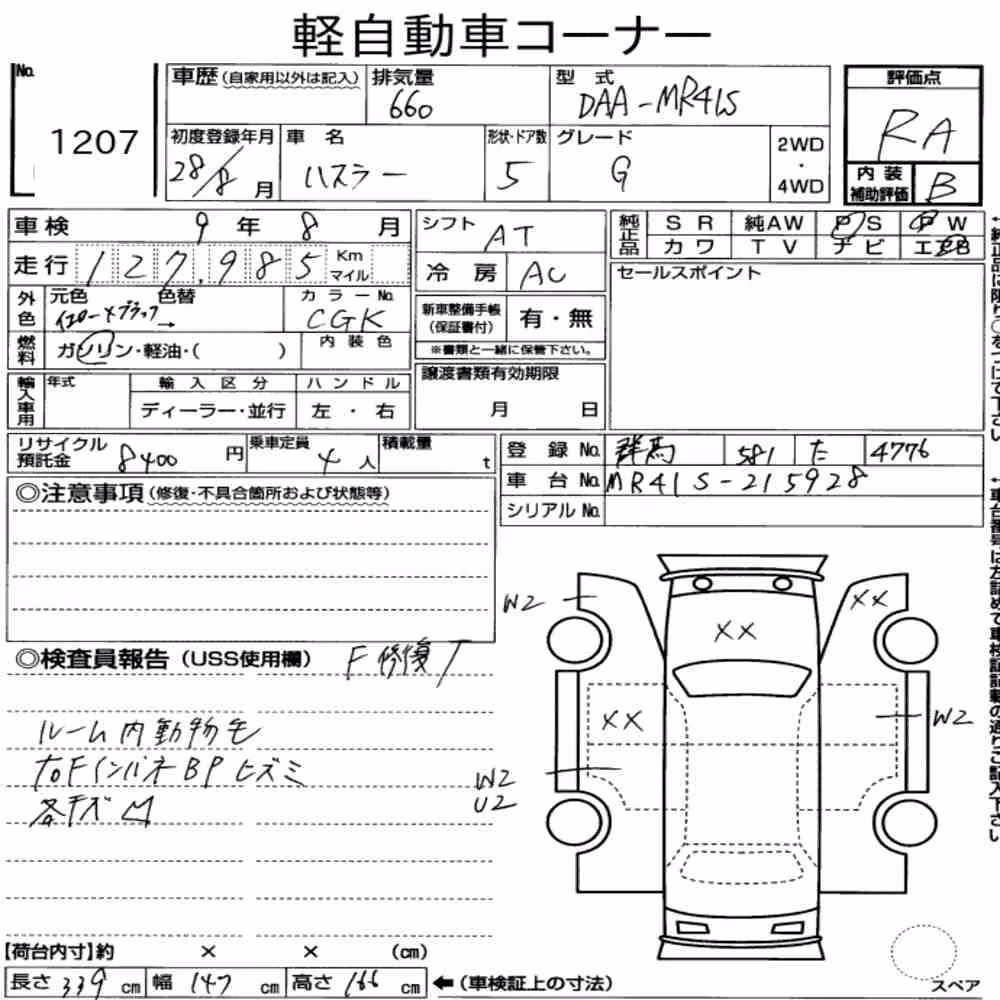 軽自動車コーナー
No.
1207
車歴(自家用以外は記入)
排気量
660
型 式
DAA-MR41S
評価点
RA
初度登録年月
28/8月
車 名
ハスラー
形状・ドア数
5
グレード
G
2WD
・
4WD
内 装
補助評価
B
車検 9年 8月
走行 127,985 Km
マイル
シフト
AT
冷 房
AC
純正品
S R 純AW P S P W
カワ T V ナビ エアB
セールスポイント
外色
元色 色替
イエロー×ブラック→
カラーNo.
CGK
燃料
ガソリン・軽油・( )
内 装 色
新車整備手帳
(保証書付)
有・無
※書類と一緒に保管下さい。
輸入車用
年式
輸 入 区 分
ハ ン ド ル
ディーラー・並行
左 ・ 右
譲渡書類有効期限
月 日
リサイクル
預託金
8400円
乗車定員
4人
積載量
t
登 録 No.
群馬 581 た 4776
車 台 No.
MR41S-215928
シリアル No.
◎注意事項(修復・不具合箇所および状態等)
◎検査員報告(USS使用欄)
F修復歴
ルーム内動物毛
右FインパネBPヒズミ
各キズ凹
W2
XX
XX
XX
W2
W2
U2
【荷台内寸】約 × × (cm)
長さ 339 cm
幅 147 cm
高さ 166 cm
←(車検証上の寸法)
スペア
←純正品は限り○をつけて下さい
←車台番号は左詰めて車検証記載の通りご記入下さい